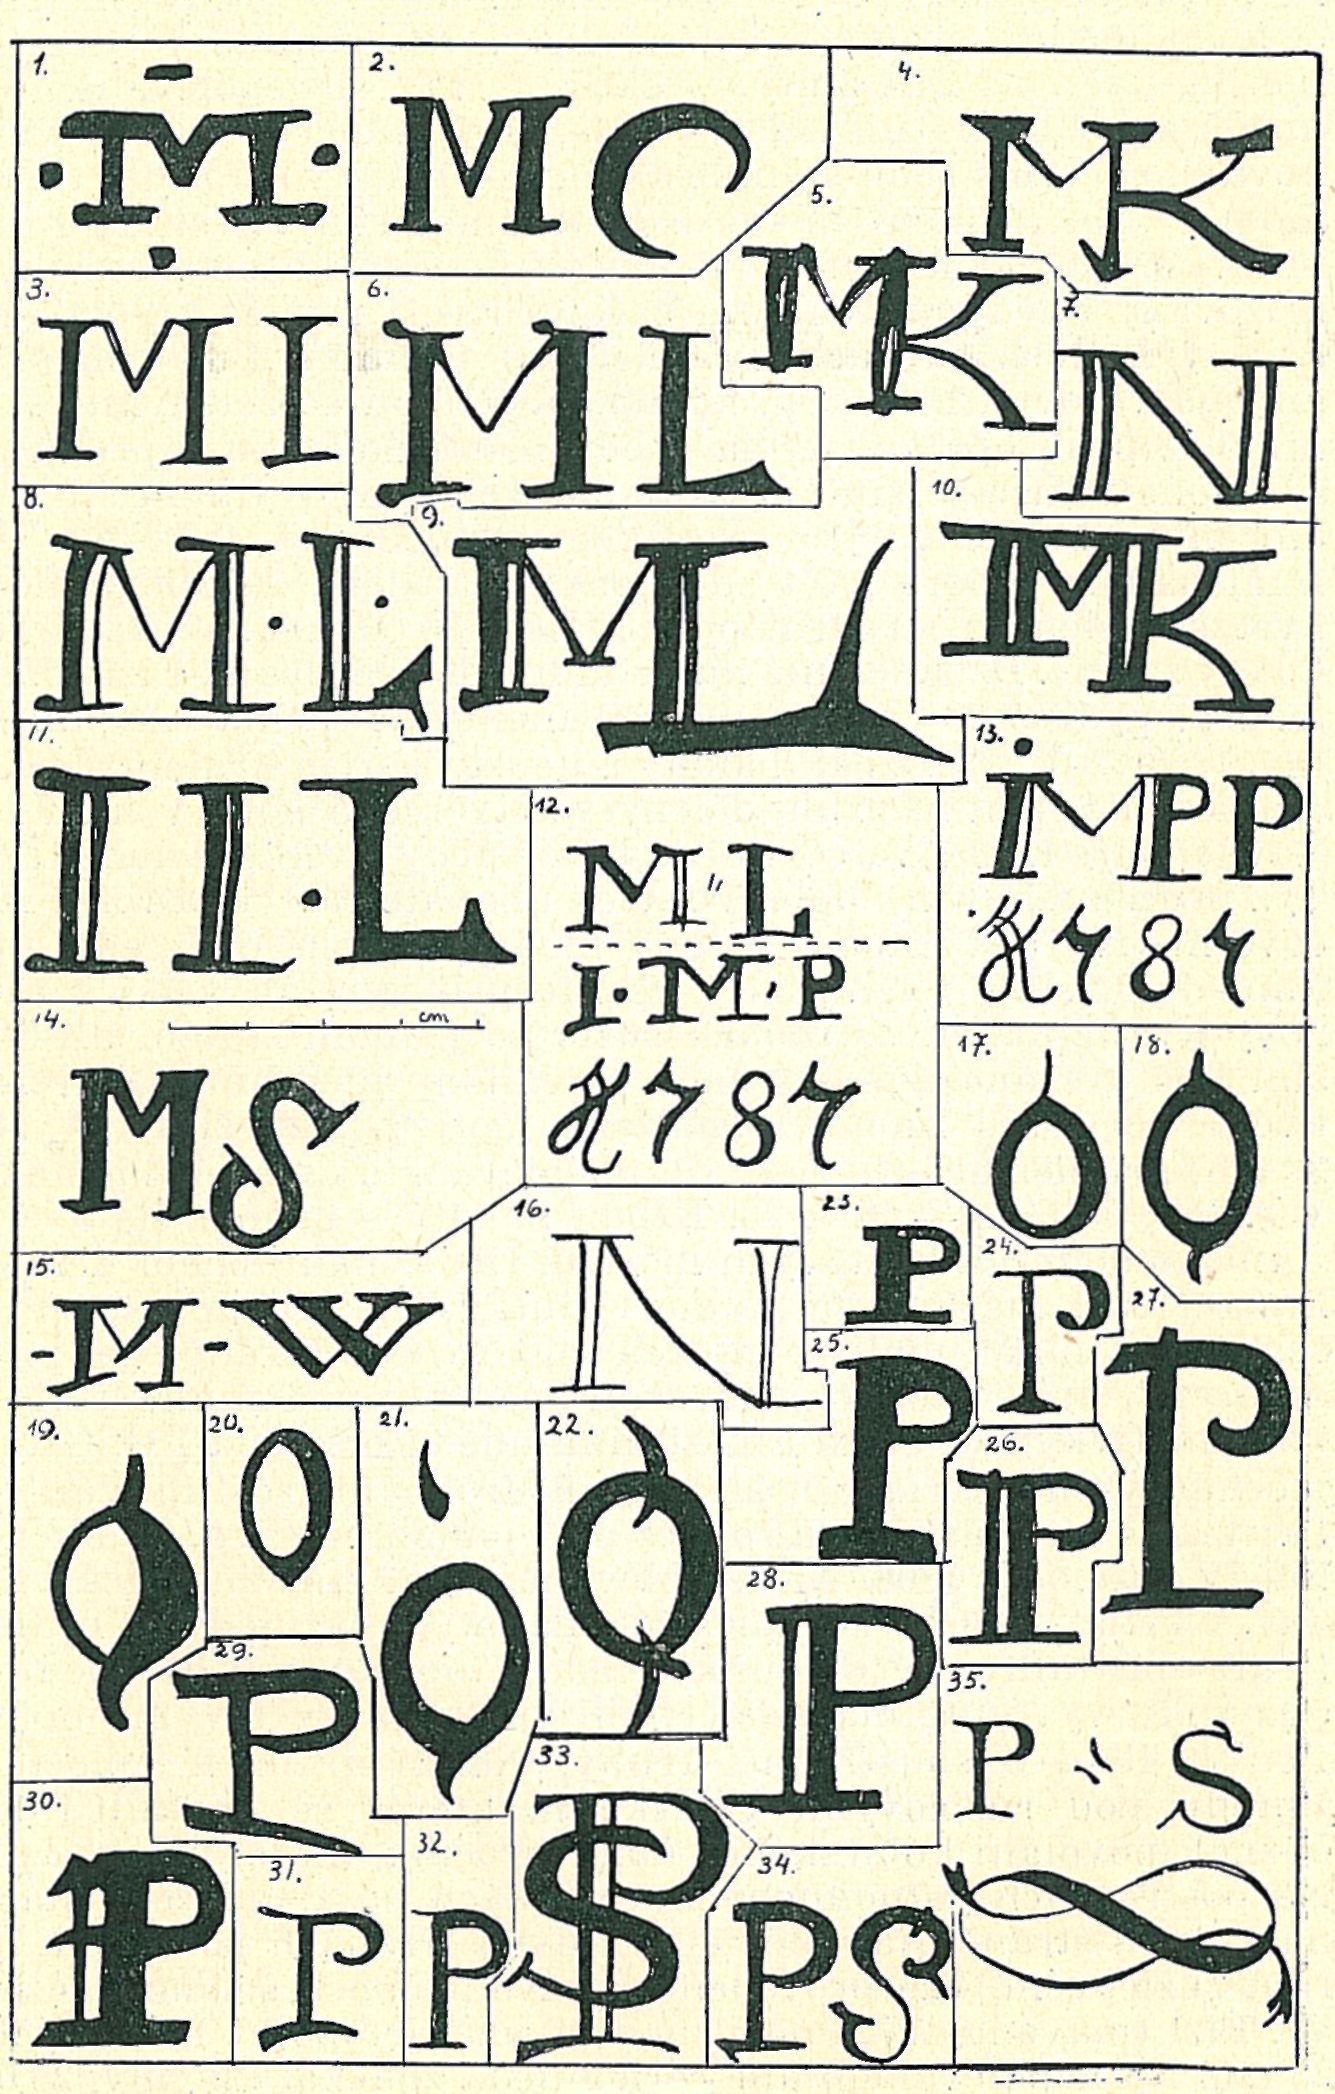 1.
·M·
2.
MC
4.
MK
3.
MI
5.
MK
6.
ML
7.
N
8.
M·L·
9.
ML
10.
MK
11.
II·L
12.
M " L
I·M·P
1787
13.
IMPP
1787
14.
cm
MS
15.
-M-W
16.
N
17.
O
18.
O
19.
Q
20.
O
21.
Q
22.
Q
23.
P
24.
P
25.
P
26.
P
27.
P
28.
P
29.
P
30.
P
31.
P
32.
P
33.
PS
34.
PS
35.
P " S